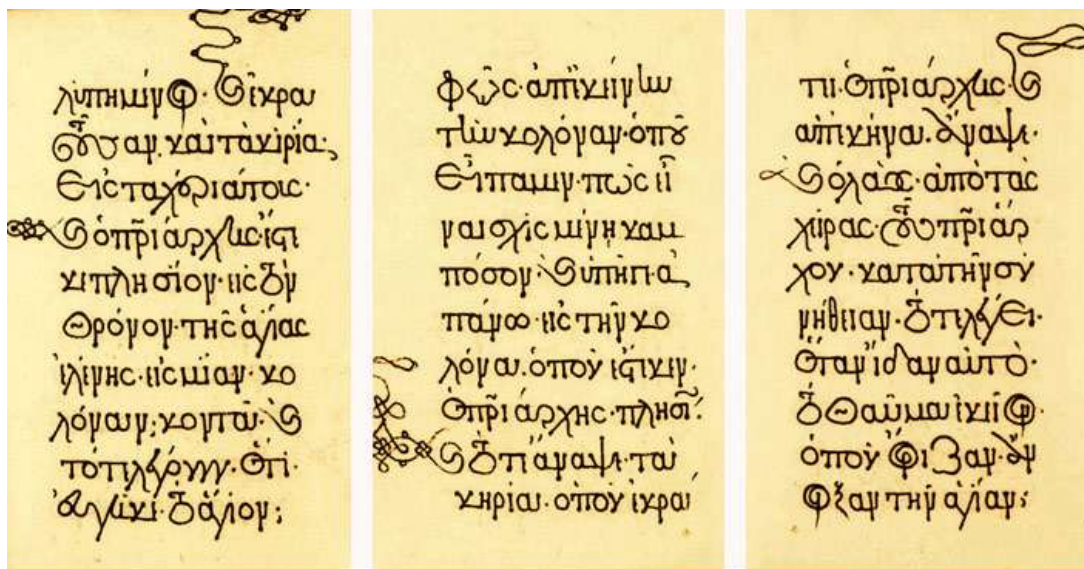 λυπημένοι· καὶ ἔκρα
τουσαν. καὶ τὰ κιρία
εἰς τα χέρια τοις·
καὶ ὁ πριάρχης· ἔστε
κε πλησίον· εἰς τὸν
θρόνον· τῆς ἁγίας
ἐλένης· εἰς μίαν· κο
λόναν· κοντα· καὶ
τότε λέγουν· ὅτι·
τὸ ἅγιον·
φῶς· ἀπ ἐκείνω
τὼν κολόναν· ὁποῦ
εἴπαμεν· πὼς εἶ
ναι σχισμένη καμ
πόσον· καὶ ὑπῆγε· ἀ
πάνω· εἰς τὴν κο
λόνα· ὁποῦ ἔστεκεν·
ὁ πριάρχης· πλησί
καὶ ὅτι ἄναψε· τα
κηρία· ὁποῦ ἐκρά
τει· ὁ πριάρχης· καὶ
απ ἐκήνα· ἄναψε·
καὶ ὁ λαὸς· ἀπὸ τὰς
χείρας· τοῦ πριάρ
χου· κατα τὴν συ
νήθειαν· ὅτι λέγει·
ὅταν ἴδαν αὐτὸ·
τὸ θαῦμα
ὁποῦ
τὴν ἁγίαν